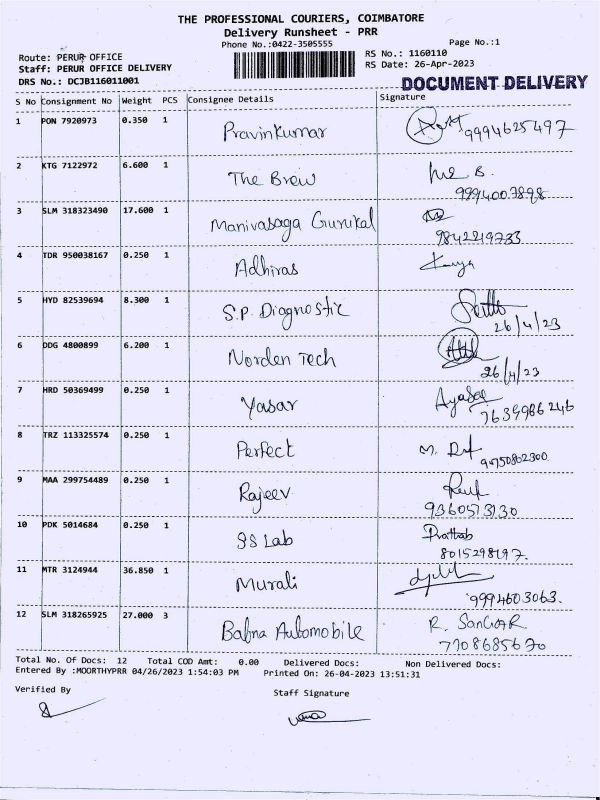 THE PROFESSIONAL COURIERS, COIMBATORE
Delivery Runsheet - PRR
Phone No.:0422-3505555
Page No.:1
Route: PERUR OFFICE
RS No.: 1160110
Staff: PERUR OFFICE DELIVERY
RS Date: 26-Apr-2023
DRS No.: DCJB116011001
DOCUMENT DELIVERY
S No Consignment No Weight PCS Consignee Details Signature
1 PON 7920973 0.350 1 Pravinkumar
9994625497
2 KTG 7122972 6.600 1 The Brew
9994007898
3 SLM 318323490 17.600 1 Manivasaga Gurukal
9842219733
4 TDR 950038167 0.250 1 Adhiras
5 HYD 82539694 8.300 1 S.P. Diagnostic
26/4/23
6 DDG 4800899 6.200 1 Norden Tech
26/4/23
7 HRD 50369499 0.250 1 Yasar
7639986246
8 TRZ 113325574 0.250 1 Perfect
9750862300
9 MAA 299754489 0.250 1 Rajeev
9360573130
10 PDK 5014684 0.250 1 SS Lab Prathab
8015298197.
11 MTR 3124944 36.850 1 Murali
9994603063.
12 SLM 318265925 27.000 3 Babna Automobile R. SANGAR
7708685670
Total No. Of Docs: 12 Total COD Amt: 0.00 Delivered Docs: Non Delivered Docs:
Entered By :MOORTHYPRR 04/26/2023 1:54:03 PM Printed On: 26-04-2023 13:51:31
Verified By
Staff Signature